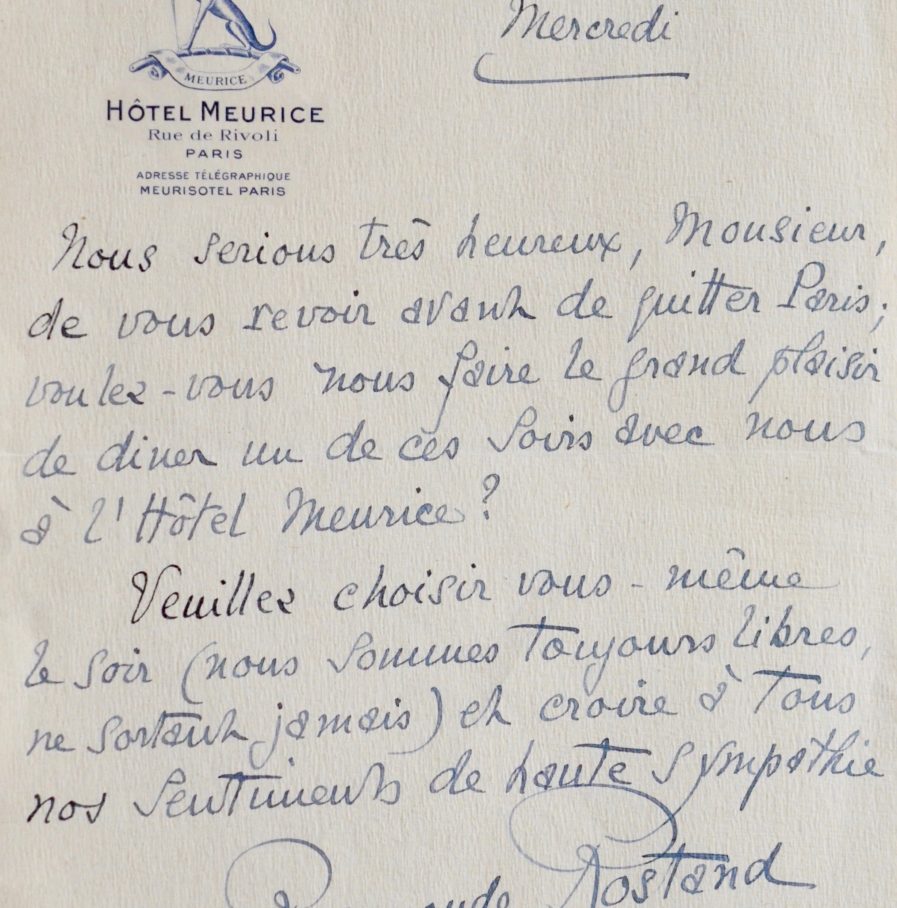 Mercredi
MEURICE
HÔTEL MEURICE
Rue de Rivoli
PARIS
ADRESSE TÉLÉGRAPHIQUE
MEURISOTEL PARIS
Nous serions très heureux, Monsieur,
de vous revoir avant de quitter Paris;
voulez-vous nous faire le grand plaisir
de diner un de ces soirs avec nous
à l'Hôtel Meurice?
Veuillez choisir vous-même
le soir (nous sommes toujours libres,
ne sortant jamais) et croire à tous
nos sentiments de haute sympathie
Rostand